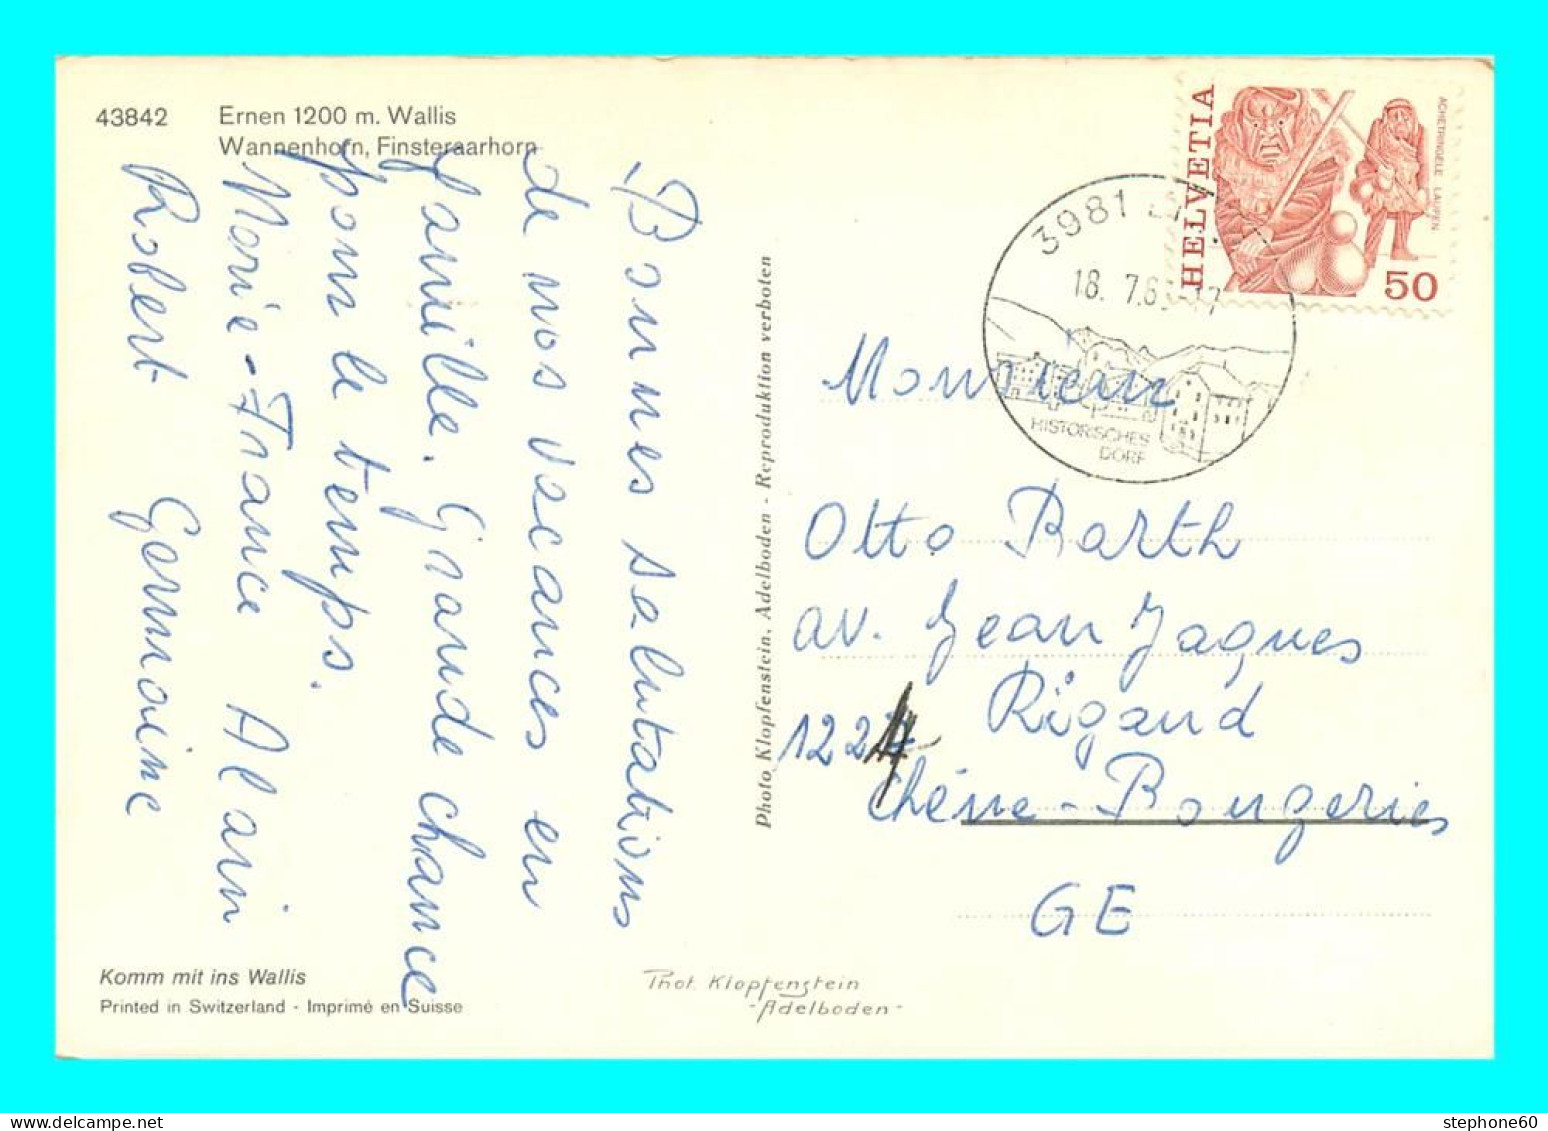 43842 Ernen 1200 m. Wallis
Wannenhorn, Finsteraarhorn
Bonnes salutations
de nos vacances en
famille. Grande chance
pour le temps.
Marie-France Alain
Robert Germaine
Komm mit ins Wallis
Printed in Switzerland - Imprimé en Suisse
Photo Klopfenstein, Adelboden - Reproduktion verboten
Phot. Klopfenstein
-Adelboden-
HELVETIA
ACHETRINGELE LAUPEN
50
3981
18. 7.8
HISTORISCHES
DORF
Monsieur
Otto Barth
av. Jean Jaques
Rigaud
1224
Chêne-Bougeries
GE
stephone60